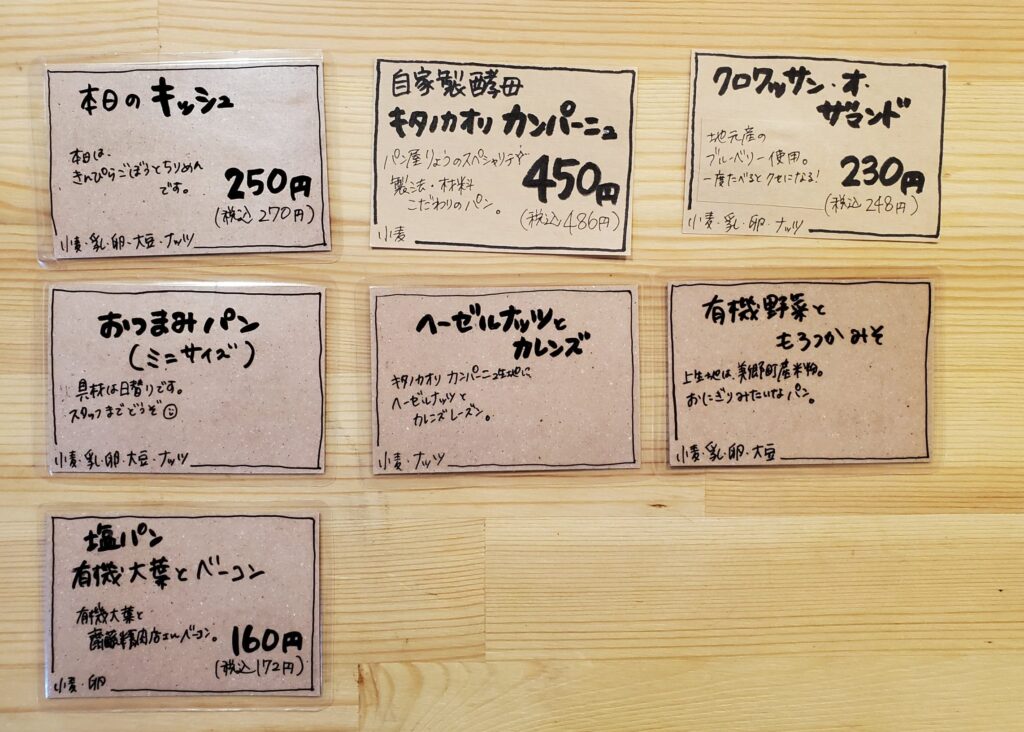 本日の キッシュ
本日は、
きんぴらごぼうとちりめん
です。
250円
(税込270円)
小麦・乳・卵・大豆・ナッツ
自家製酵母
キタノカオリ カンパーニュ
パン屋りょうのスペシャリテ
製法・材料
こだわりのパン。
450円
(税込486円)
小麦
クロワッサン・オ・
ザマンド
地元産の
ブルーベリー使用。
一度たべるとクセになる!
230円
(税込248円)
小麦・乳・卵・ナッツ
おつまみパン
(ミニサイズ)
具材は日替りです。
スタッフまでどうぞ
小麦・乳・卵・大豆・ナッツ
ヘーゼルナッツと
カレンズ
キタノカオリ カンパーニュ生地に
ヘーゼルナッツと
カレンズレーズン。
小麦・ナッツ
有機野菜と
もろつかみそ
上生地は、美郷町産米粉。
おにぎりみたいなパン。
小麦・乳・卵・大豆
塩パン
有機大葉とベーコン
有機大葉と
精肉店さんベーコン。
160円
(税込172円)
小麦・卵